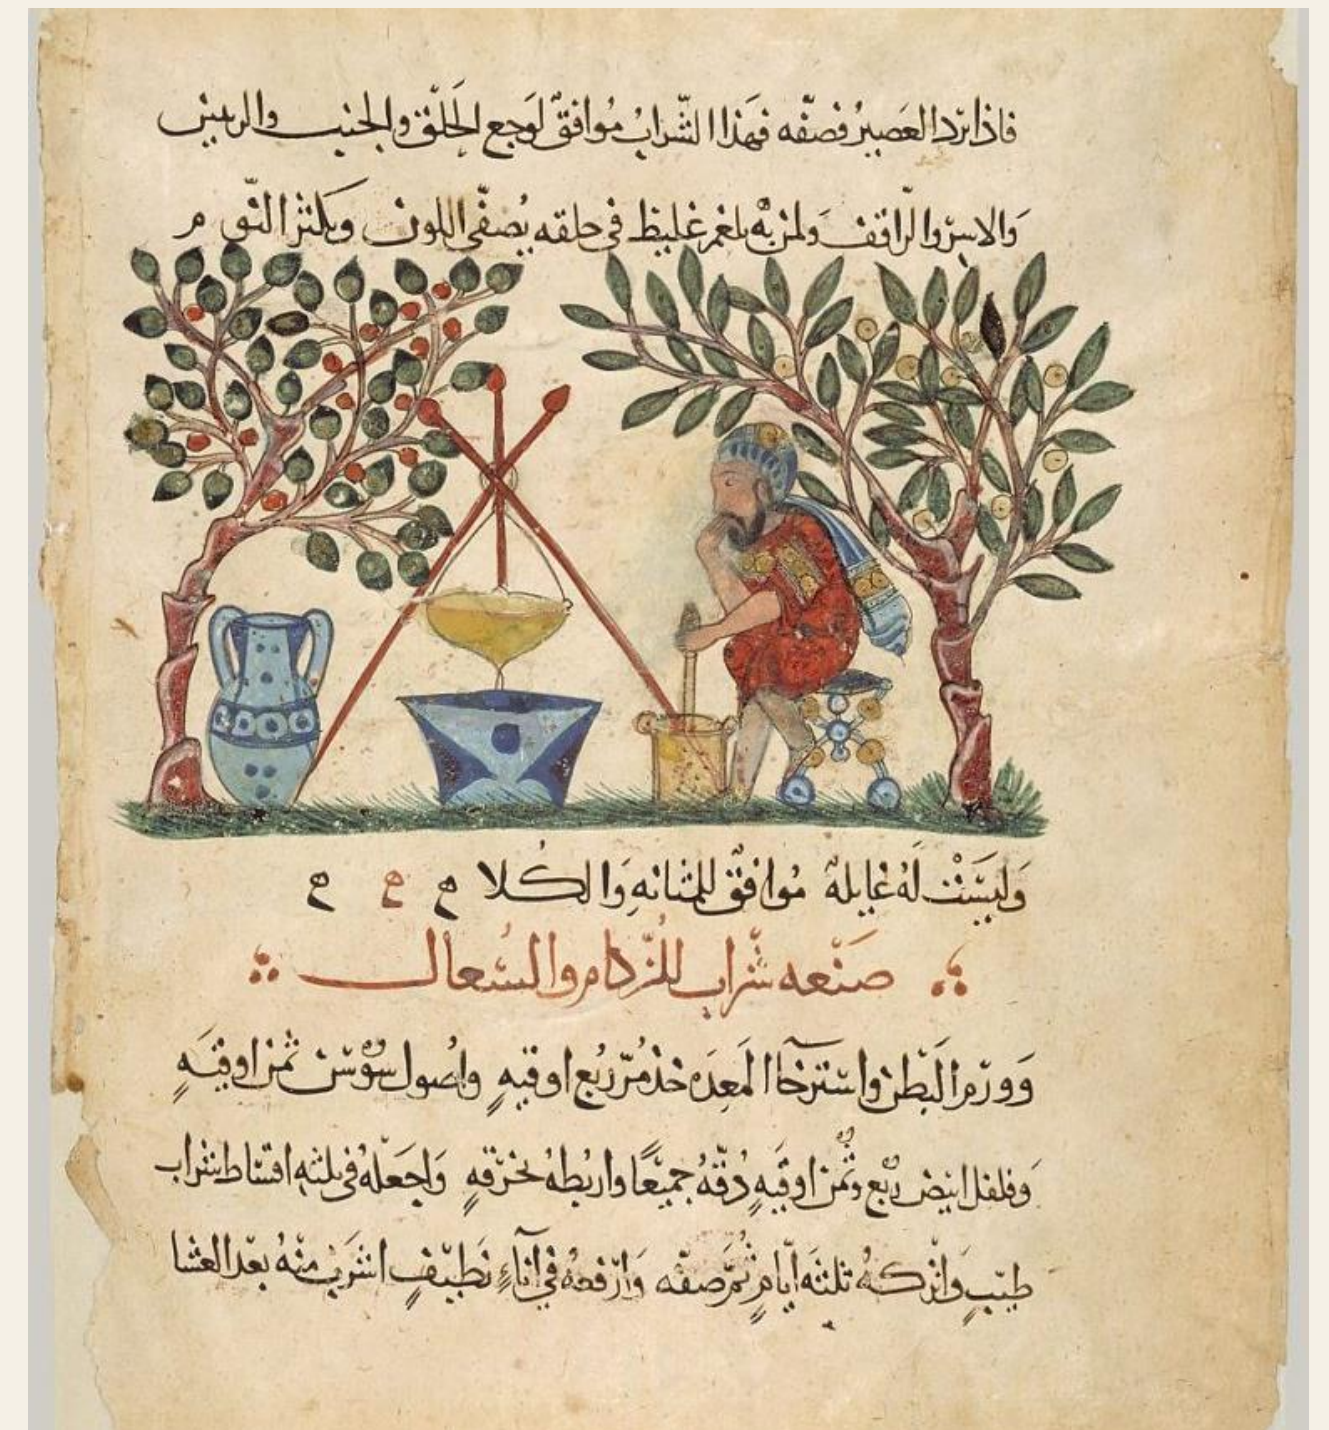 فاذا برد العصيرُ فصفّه فهذا الشّرابُ مُوافقٌ لوَجع الحَلْق والجنب والريتين
وَالاسر والرّاقف وَلمن بهْ بلغم غليظ في حلقه يُصفّي اللون ويكثر النّوم
وَليسَتْ لَهُ غايلهٌ مُوافقٌ للمثانهِ وَالكُلا ح ح ح
صَنْعه شَراب للزّكام والسُعال
وَورَم البَطن واسْترخآ المَعِدَه خذ مُرّ رُبع اوقيهٍ واُصُول سُوْسن ثمن اوقيَهٍ
وَفلفل ابيض رُبع وثُمن اوقيَهٍ دُقّهُ جميعًا واربُطهُ بخرْقهٍ وَاجعَلهُ في ثلثه اقساط شراب
طيّبٍ وَاتْركهُ ثلثه ايّامٍ ثمّ صفّه وَارْفعهُ في آناءٍ نَظيفٍ اشرَبْ منْهُ بعْد العشا